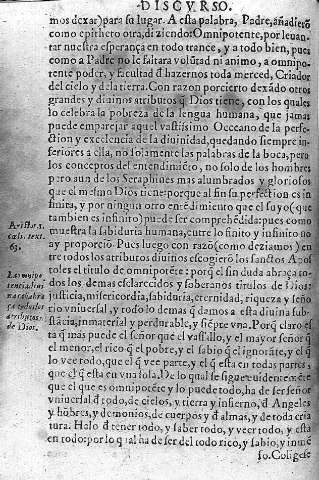 DISCVRSO.
mos dexar) para su lugar. A esta palabra, Padre, añadierõ
como epitheto otra, diziendo: Omnipotente, por leuan-
tar nuestra esperança en todo trance, y a todo bien, pues
como a Padre no le faltara volũtad ni animo, a omnipo-
tente poder, y facultad đ hazernos toda merced, Criador
del cielo y de la tierra. Con razon por cierto dexãdo otros
grandes y diuinos atributos q̃ Dios tiene, con los quales
lo celebra la pobreza de la lengua humana, que jamas
puede emparejar aquel vastissimo Occeano de la perfe-
ction y excelencia de la diuinidad, quedando siempre in-
feriores a ella, no solamente las palabras de la boca, pero
los conceptos del entendimiẽto, no solo de los hombres
pero aun de los Seraphines mas alumbrados y gloriosos
que el mismo Dios tiene: porque al fin su perfection es in
finita, y por ninguno otro entẽdimiento que el suyo (que
tambien es infinito) puede ser comprehẽdida: pues como
muestra la sabiduria humana, entre lo finito y infinito no
ay proporciõ. Pues luego con razõ (como deziamos) en
tre todos los atributos diuinos escogierõ los sanctos Apos
toles el titulo de omnipotẽte: porq̃ el sin duda abraça to-
dos los demas esclarecidos y soberanos titulos de Dios:
justicia, misericordia, sabiduria, eternidad, riqueza y seño
rio vniuersal, y todo lo demas q̃ damos a esta diuina sub-
stãcia, inmaterial y perdurable, y siẽpre vna. Porq̃ claro es
ta q̃ mas puede el señor que el vassallo, y el mayor señor q̃
el menor, el rico q̃ el pobre, y el sabio q̃ el ignorãte, y el q̃
lo vee todo, que el q̃ vee parte, y el q̃ esta en todas partes,
que el q̃ esta en vna sola. De lo qual se sigue euidentemẽte
que el que es omnipotẽte y lo puede todo, ha de ser señor
vniuersal đ todo, de cielos, y tierra y infierno, đ Angeles
y hõbres, y demonios, de cuerpos y đ almas, y de toda cria
tura. Ha lo đ tener todo, y saber todo, y veer todo, y esta
en todo: por lo qual ha de ser del todo rico, y sabio, y inmẽ
so. Coligese
Aristo. 1.
cæli. text.
63.
La omnipo
tencia diui
na abraça
todos los
atributos
de Dios.